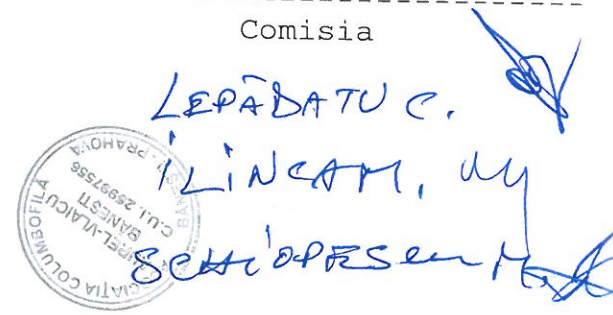 Comisia
LEPĂDATU C.
ILINCA M.
SCHIOPESCU M.
ASOCIATIA COLUMBOFILA
AUREL VLAICU
BANESTI
C.U.I. 25997556
BANESTI - PRAHOVA